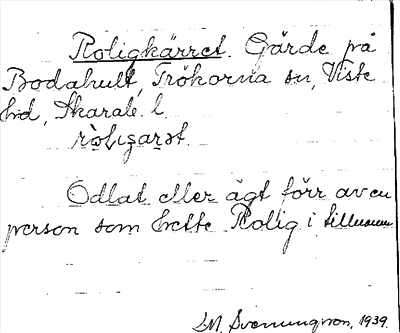 Roligkärret. Gärde på
Bodahult, Trökörna sn, Viste
hd, Skarab. l.
ròlıgarət.
Odlat eller ägt förr av en
person som hette Rolig i tillnamn
L.M. Svenungsson, 1939.